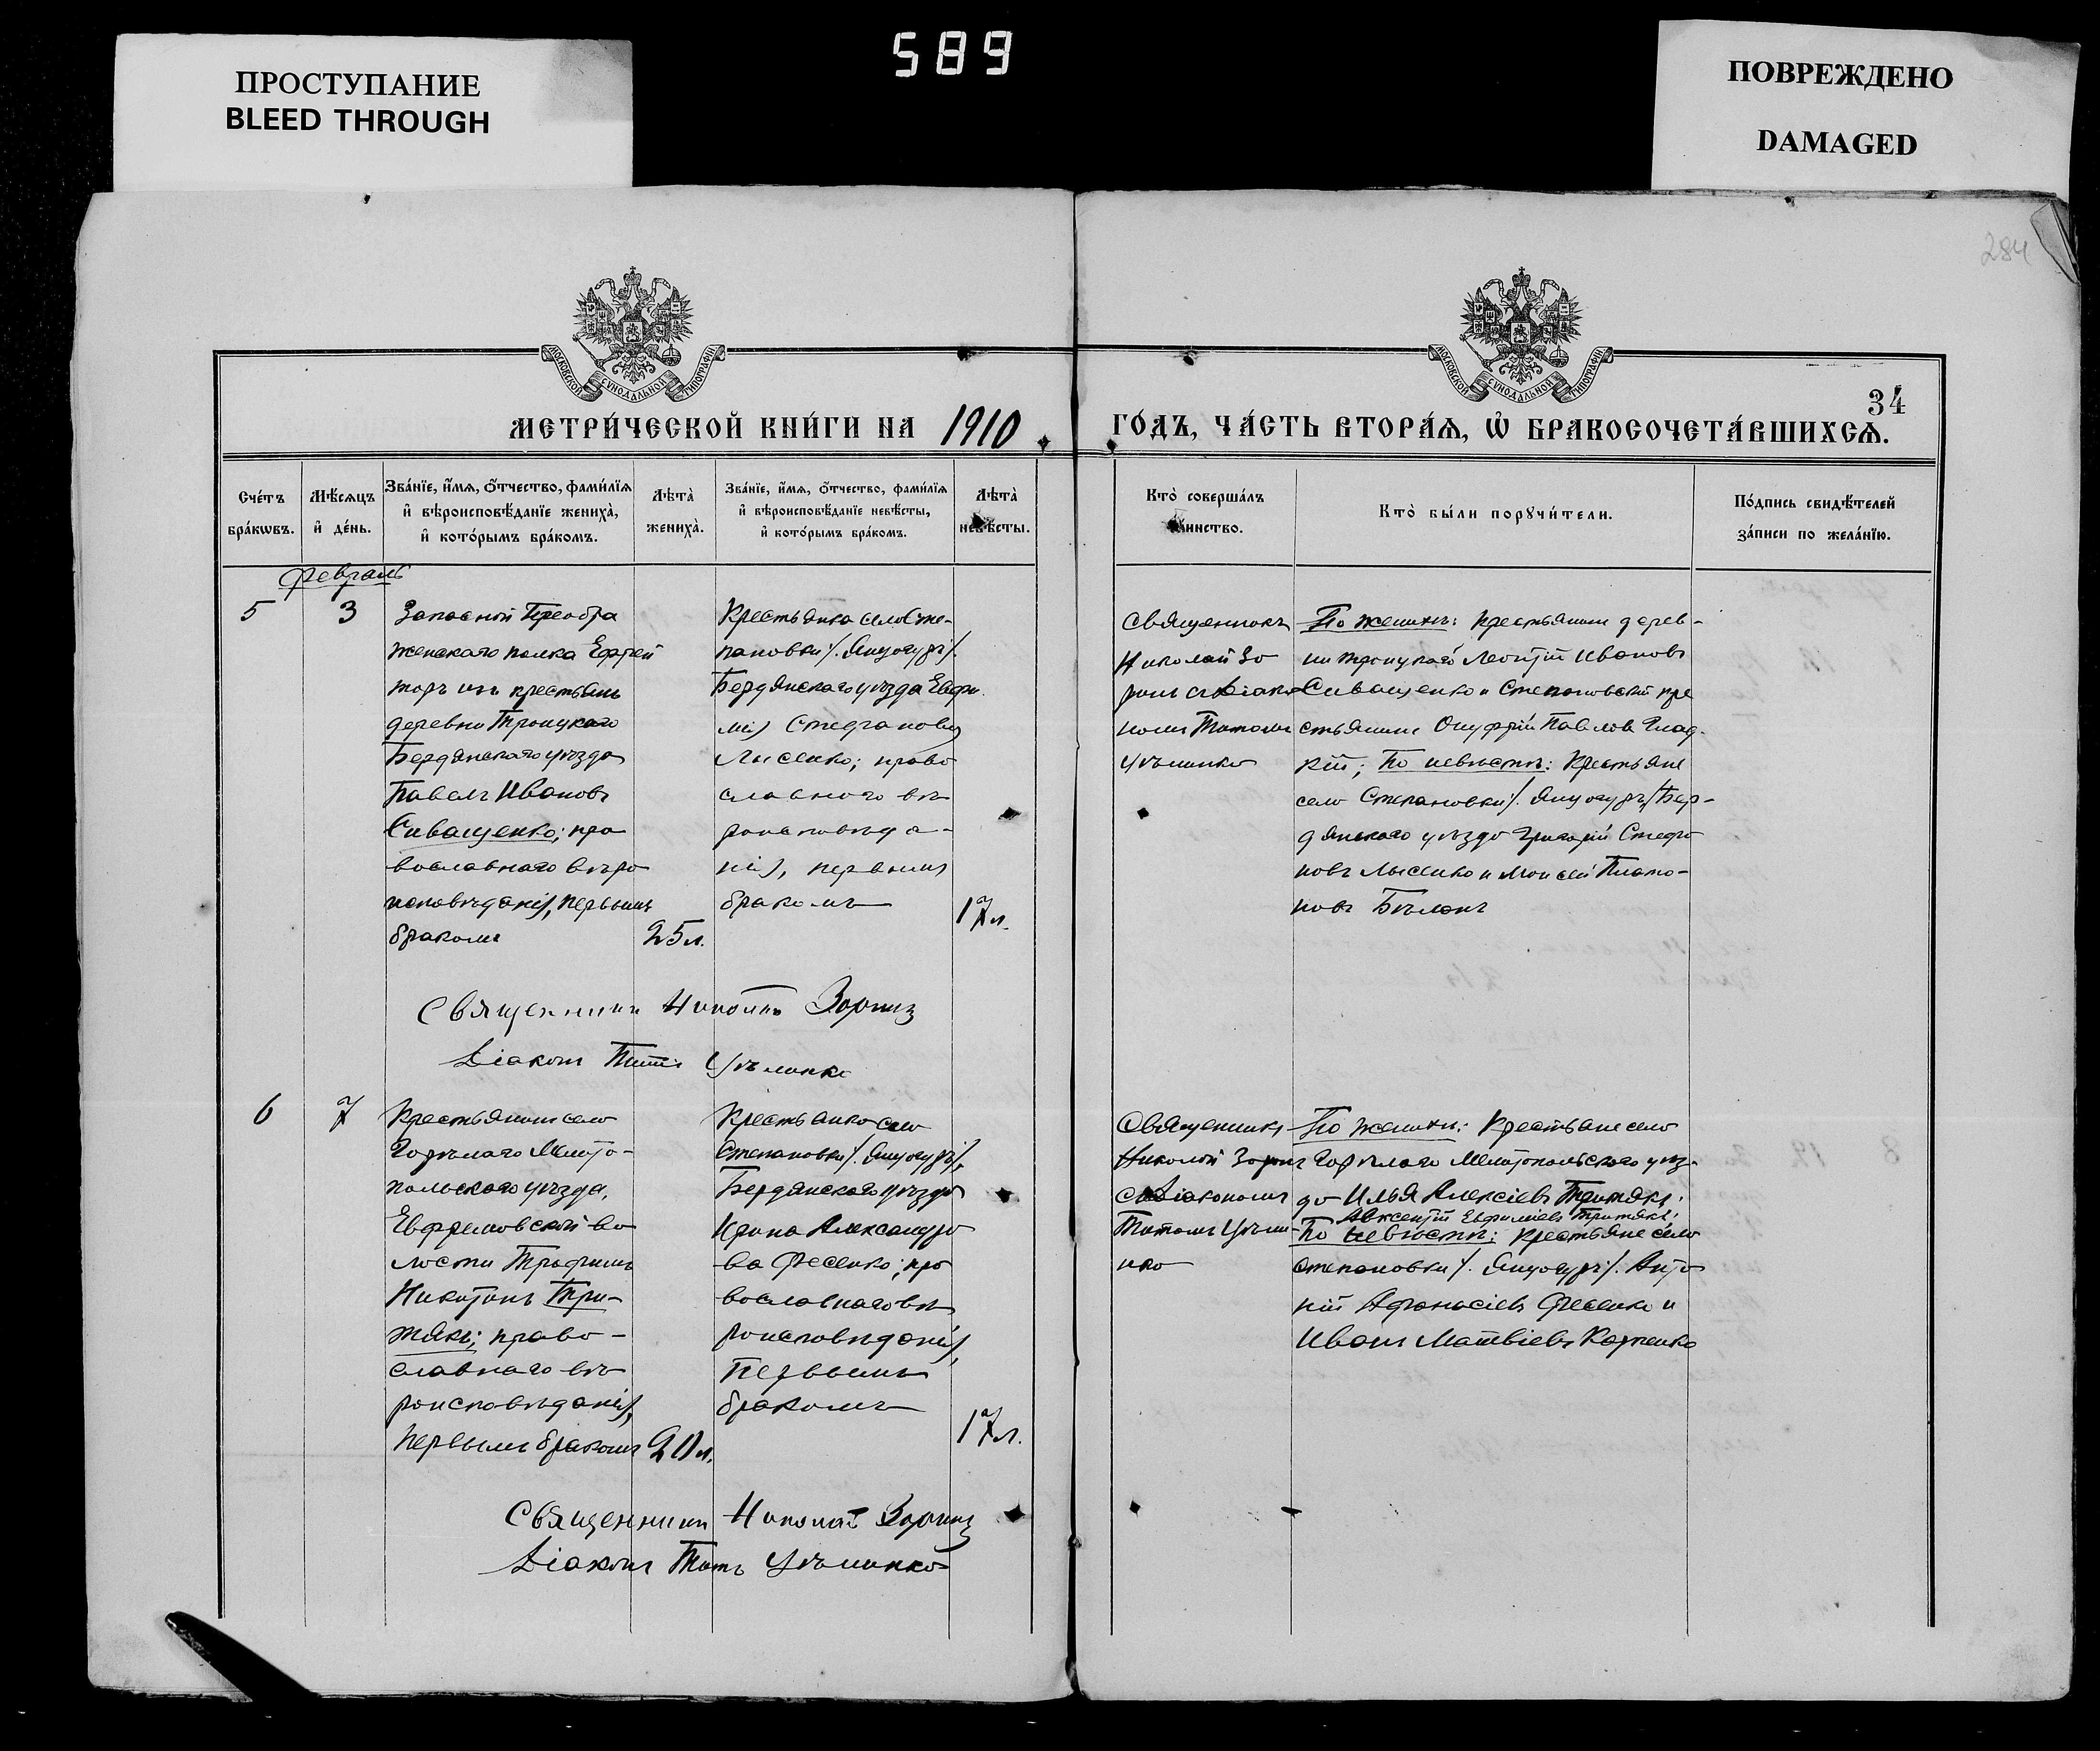 589
ПРОСТУПАНИЕ
BLEED THROUGH
ПОВРЕЖДЕНО
DAMAGED
284
МОСКОВСКОЙ СѴНОДАЛЬНОЙ ТИПОГРАФІИ
МОСКОВСКОЙ СѴНОДАЛЬНОЙ ТИПОГРАФІИ
34
МЕТРИ́ЧЕСКОЙ КНИ́ГИ НА 1910
ГО́ДЪ, ЧА́СТЬ ВТОРА́Ѧ, Ѡ҆ БРАКОСОЧЕТА́ВШИХСѦ.
Сче́тъ
бра́кѡвъ.
Мѣ́сѧцъ
и҆ де́нь.
Зва́нїе, и҆́мѧ, ѻ҆́тчество, фами́лїѧ
и҆ вѣроисповѣ́данїе жениха̀,
и҆ кото́рымъ бра́комъ.
Лѣта̀
жениха̀.
Зва́нїе, и҆́мѧ, ѻ҆́тчество, фами́лїѧ
и҆ вѣроисповѣ́данїе невѣ́сты,
и҆ кото́рымъ бра́комъ.
Лѣта̀
невѣ́сты.
Кто̀ соверша́лъ
таинство.
Кто̀ бы́ли порꙋчи́тели.
По́дпись свидѣ́телей
за́писи по жела́нїю.
Февраль
5
3
Запасной Преобра
женскаго полка Ефрей
торъ изъ крестьянъ
деревни Троицкаго
Бердянскаго уѣзда
Павелъ Ивановъ
Сиващенко; пра
вославнаго вѣро
исповѣданія, первымъ
бракомъ
25 л.
Крестьянка села Сте-
пановки /. Янчогузъ/.
Бердянскаго уѣзда Евфи
мія Стефанова
Лысенко; право
славнаго вѣ
роисповѣда-
нія, первымъ
бракомъ
17 л.
Священникъ
Николай Зо
ринъ съ Діако
номъ Титомъ
По женихѣ: крестьянинъ дерев-
ни Троицкаго Леонтій Ивановъ
Сиващенко и Степановскій кре
стьянинъ Онуфрій Павловъ Глад-
кій; По невѣстѣ: Крестьяне
села Степановки /. Янчогузъ/ Бер-
дянскаго уѣзда Григорій Стефа
новъ Лысенко и Моисей Плато-
новъ Бѣланъ
Священникъ Николай Зоринъ
Діаконъ Титъ
6
7
Крестьянинъ села
Горѣлаго Мелито-
польскаго уѣзда,
Евфремовской во
лости Трофимъ
Никитинъ Три-
тякъ; право-
славнаго вѣ
роисповѣданія,
первымъ бракомъ
20 л.
Крестьянка села
Степановки /. Янчогузъ/.
Бердянскаго уѣзда
Ирина Александро
ва Фесенко; пра
вославнаго вѣ
роисповѣданія,
первымъ
бракомъ
17 л.
Священникъ
Николай Зоринъ
съ Діакономъ
Титомъ
По женихѣ: Крестьяне села
Горѣлаго Мелитопольскаго уѣз-
да Илья Алексіевъ Тритякъ;
Авксентій Евфиміевъ Тритякъ;
По невѣстѣ: крестьяне села
Степановки /. Янчогузъ/. Анто
ній Афанасіевъ Фесенко и
Иванъ Матвіевъ Карпенко
Священникъ Николай Зоринъ
Діаконъ Титъ